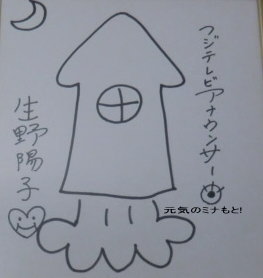 フジテレビアナウンサー
生野陽子
元気のミナもと!